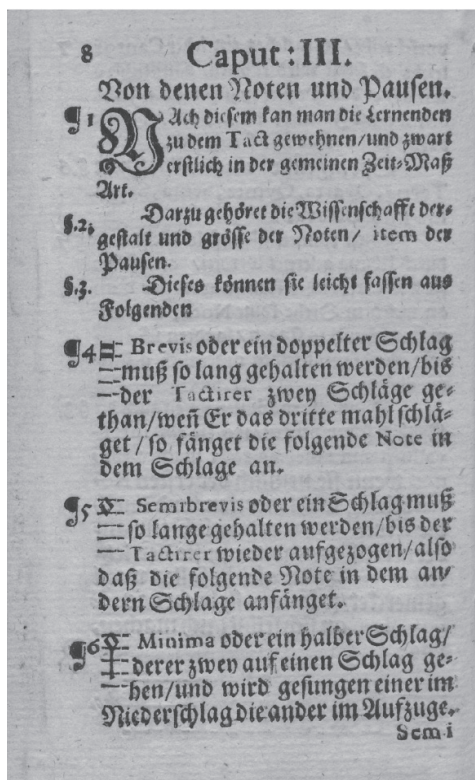 8 Caput: III.
Von denen Noten und Pausen.
¶1 NAch diesem kan man die Lernenden
zu dem Tact gewehnen/und zwart
erstlich in der gemeinen Zeit-Maß
Art.
§.2. Darzu gehöret die Wissenschafft der-
gestalt und grösse der Noten/ item der
Pausen.
§.3. Dieses können sie leicht fassen aus
Folgenden
¶4 Brevis oder ein doppelter Schlag
muß so lang gehalten werden/bis
der Tactirer zwey Schläge ge-
than/weñ Er das dritte mahl schlä-
get/so fänget die folgende Note in
dem Schlage an.
¶5 Semibrevis oder ein Schlag muß
so lange gehalten werden/bis der
Tactirer wieder aufgezogen/also
daß die folgende Note in dem an-
dern Schlage anfänget.
¶6 Minima oder ein halber Schlag/
derer zwey auf einen Schlag ge-
hen/und wird gesungen einer im
Niederschlag die ander im Aufzuge.
Semi